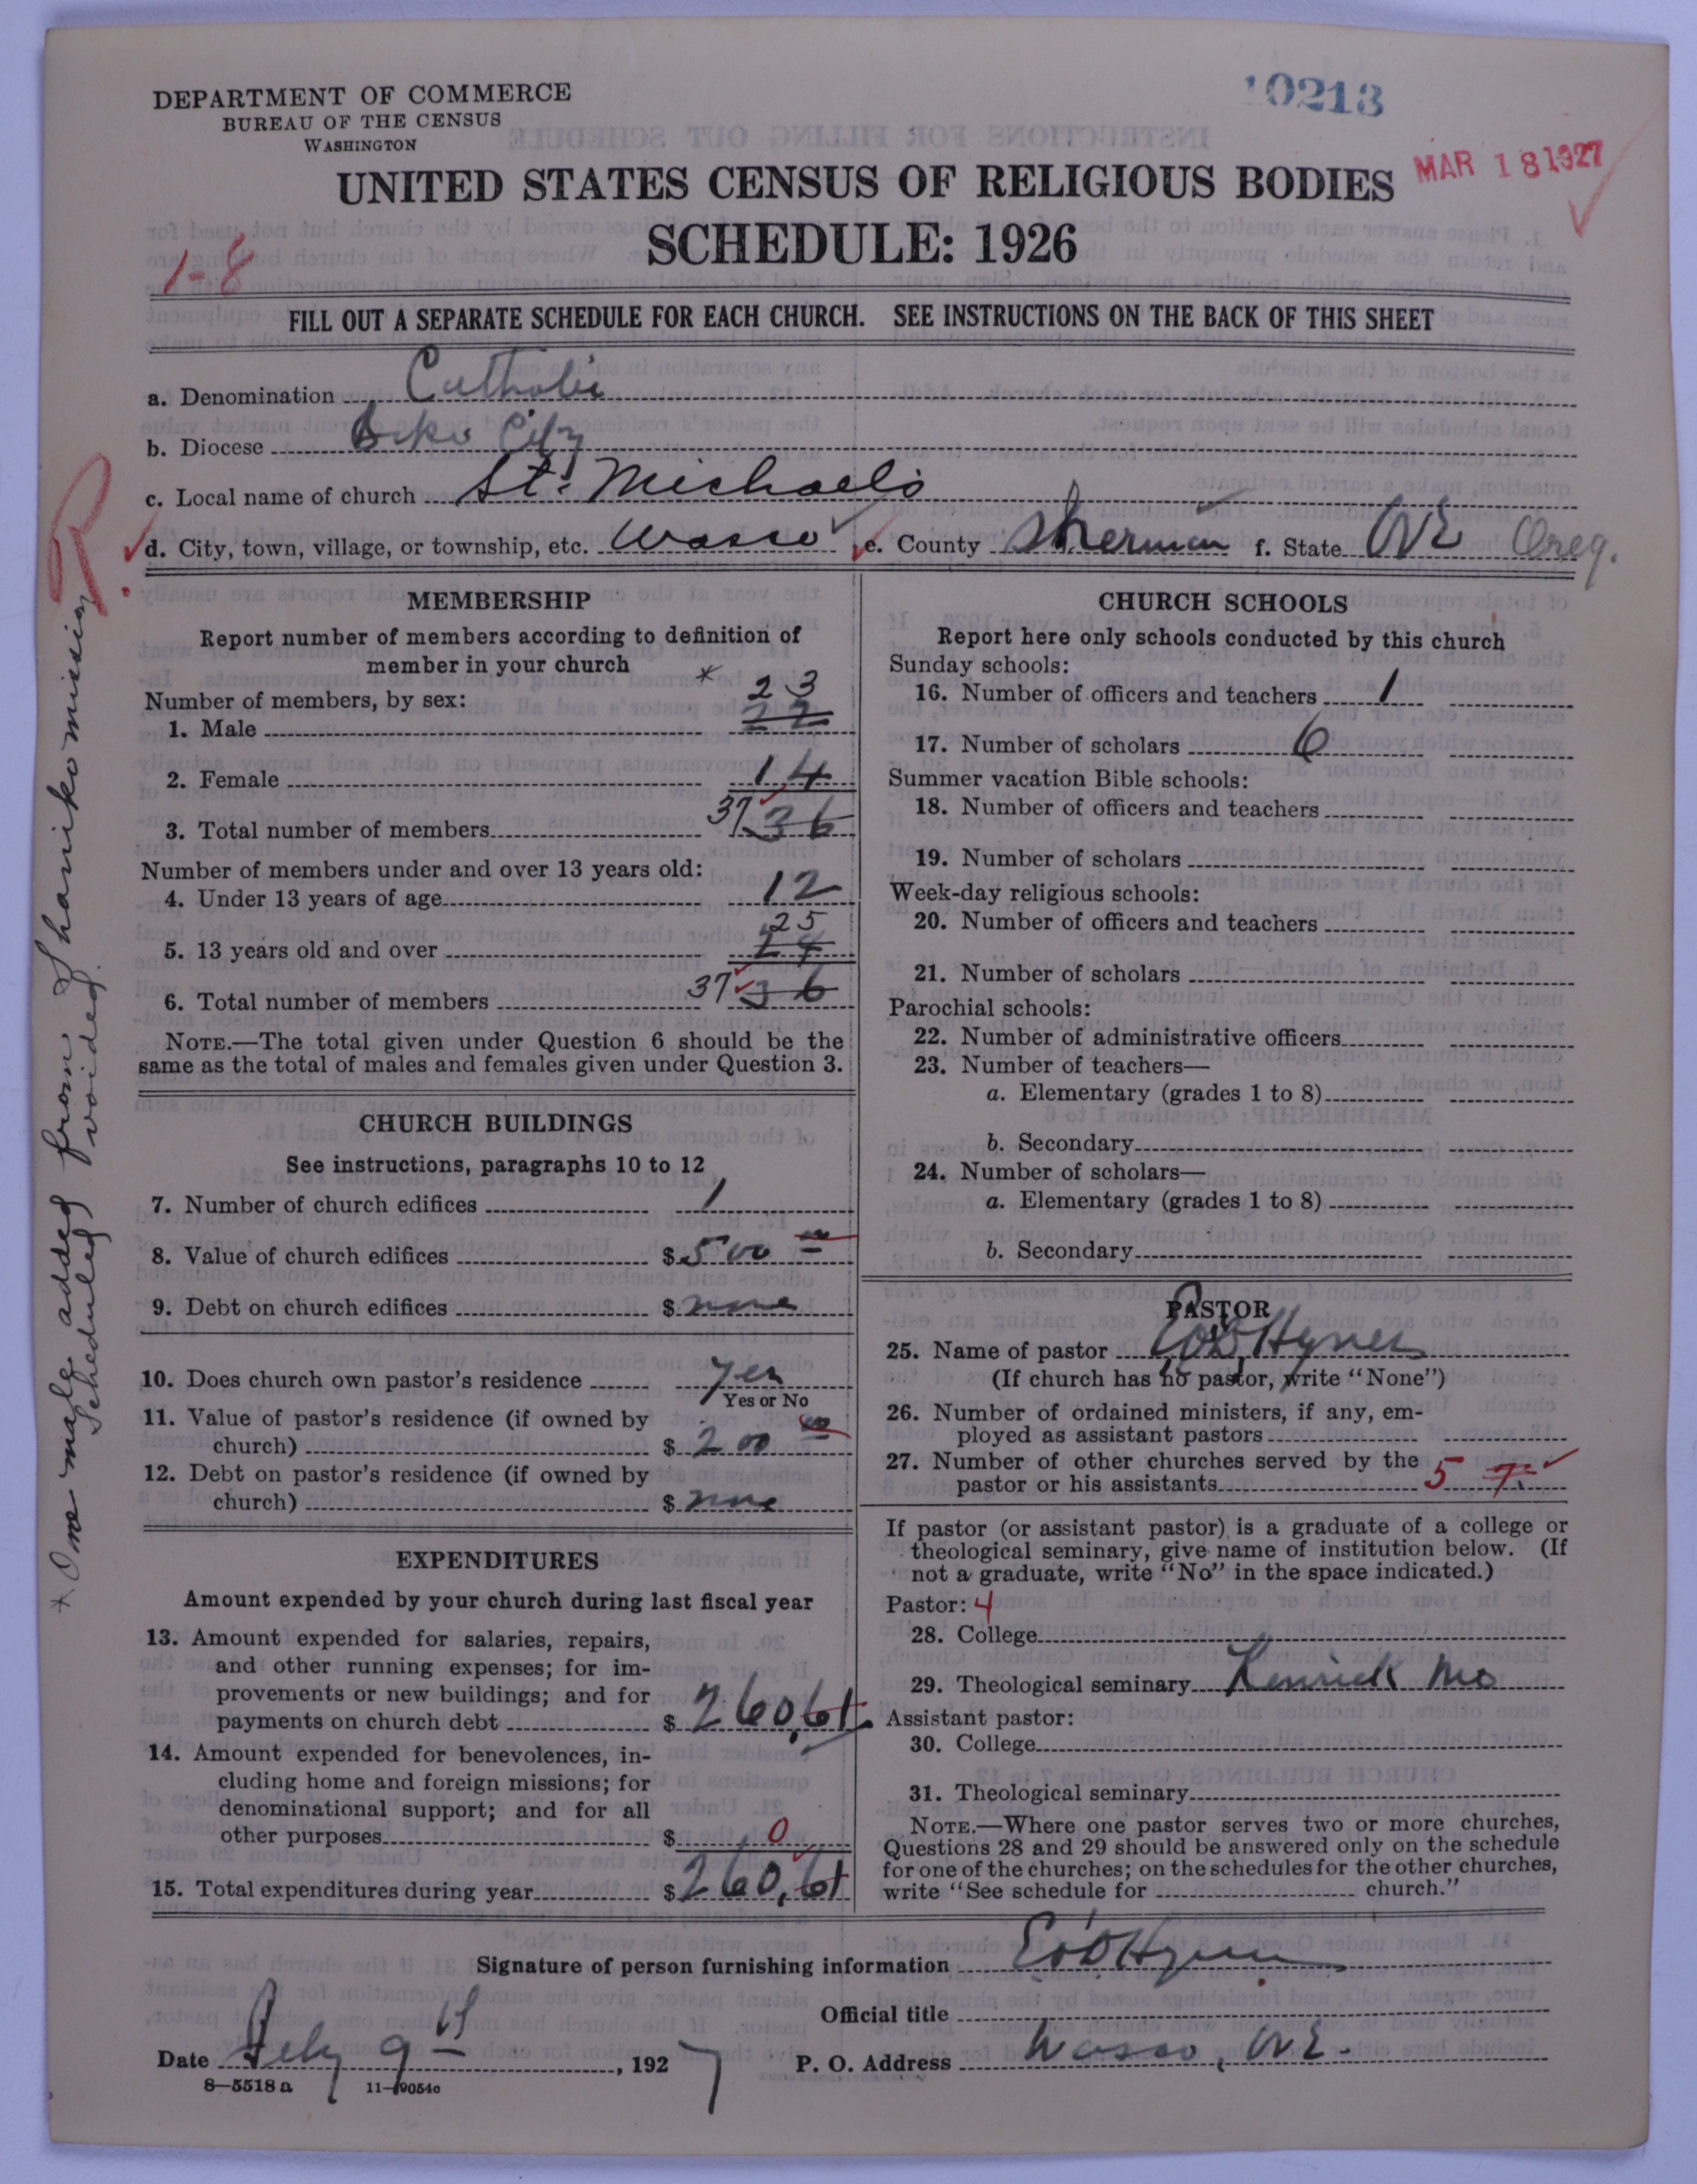 DEPARTMENT OF COMMERCE
BUREAU OF THE CENSUS
WASHINGTON
10213
MAR 18 1927
UNITED STATES CENSUS OF RELIGIOUS BODIES
SCHEDULE: 1926
1-8
FILL OUT A SEPARATE SCHEDULE FOR EACH CHURCH. SEE INSTRUCTIONS ON THE BACK OF THIS SHEET
a. Denomination Catholic
b. Diocese Baker City
c. Local name of church St. Michaels
d. City, town, village, or township, etc. Wasco e. County Sherman f. State ORE Oreg.
MEMBERSHIP
Report number of members according to definition of
member in your church *
Number of members, by sex: 23
1. Male 22
2. Female 14
3. Total number of members 37 36
Number of members under and over 13 years old:
4. Under 13 years of age 12
25
5. 13 years old and over 24
6. Total number of members 37 36
NOTE.—The total given under Question 6 should be the
same as the total of males and females given under Question 3.
CHURCH BUILDINGS
See instructions, paragraphs 10 to 12
7. Number of church edifices 1
8. Value of church edifices $ 500 00
9. Debt on church edifices $ none
10. Does church own pastor's residence yes
Yes or No
11. Value of pastor's residence (if owned by
church) $ 200 00
12. Debt on pastor's residence (if owned by
church) $ none
EXPENDITURES
Amount expended by your church during last fiscal year
13. Amount expended for salaries, repairs,
and other running expenses; for im-
provements or new buildings; and for
payments on church debt $ 260,61
14. Amount expended for benevolences, in-
cluding home and foreign missions; for
denominational support; and for all
other purposes $ 0
15. Total expenditures during year $ 260,61
CHURCH SCHOOLS
Report here only schools conducted by this church
Sunday schools:
16. Number of officers and teachers 1
17. Number of scholars 6
Summer vacation Bible schools:
18. Number of officers and teachers
19. Number of scholars
Week-day religious schools:
20. Number of officers and teachers
21. Number of scholars
Parochial schools:
22. Number of administrative officers
23. Number of teachers—
a. Elementary (grades 1 to 8)
b. Secondary
24. Number of scholars—
a. Elementary (grades 1 to 8)
b. Secondary
PASTOR
25. Name of pastor Hynes
(If church has no pastor, write "None")
26. Number of ordained ministers, if any, em-
ployed as assistant pastors
27. Number of other churches served by the
pastor or his assistants 5 7
If pastor (or assistant pastor) is a graduate of a college or
theological seminary, give name of institution below. (If
not a graduate, write "No" in the space indicated.)
Pastor: 4
28. College
29. Theological seminary Kenrick Mo
Assistant pastor:
30. College
31. Theological seminary
NOTE.—Where one pastor serves two or more churches,
Questions 28 and 29 should be answered only on the schedule
for one of the churches; on the schedules for the other churches,
write "See schedule for church."
Signature of person furnishing information Hynes
Official title
Date Feby 9th, 1927 P. O. Address Wasco, ORE.
8—5518 a 11—9054c
* One male added from Shaniko mission
Schedule voided.